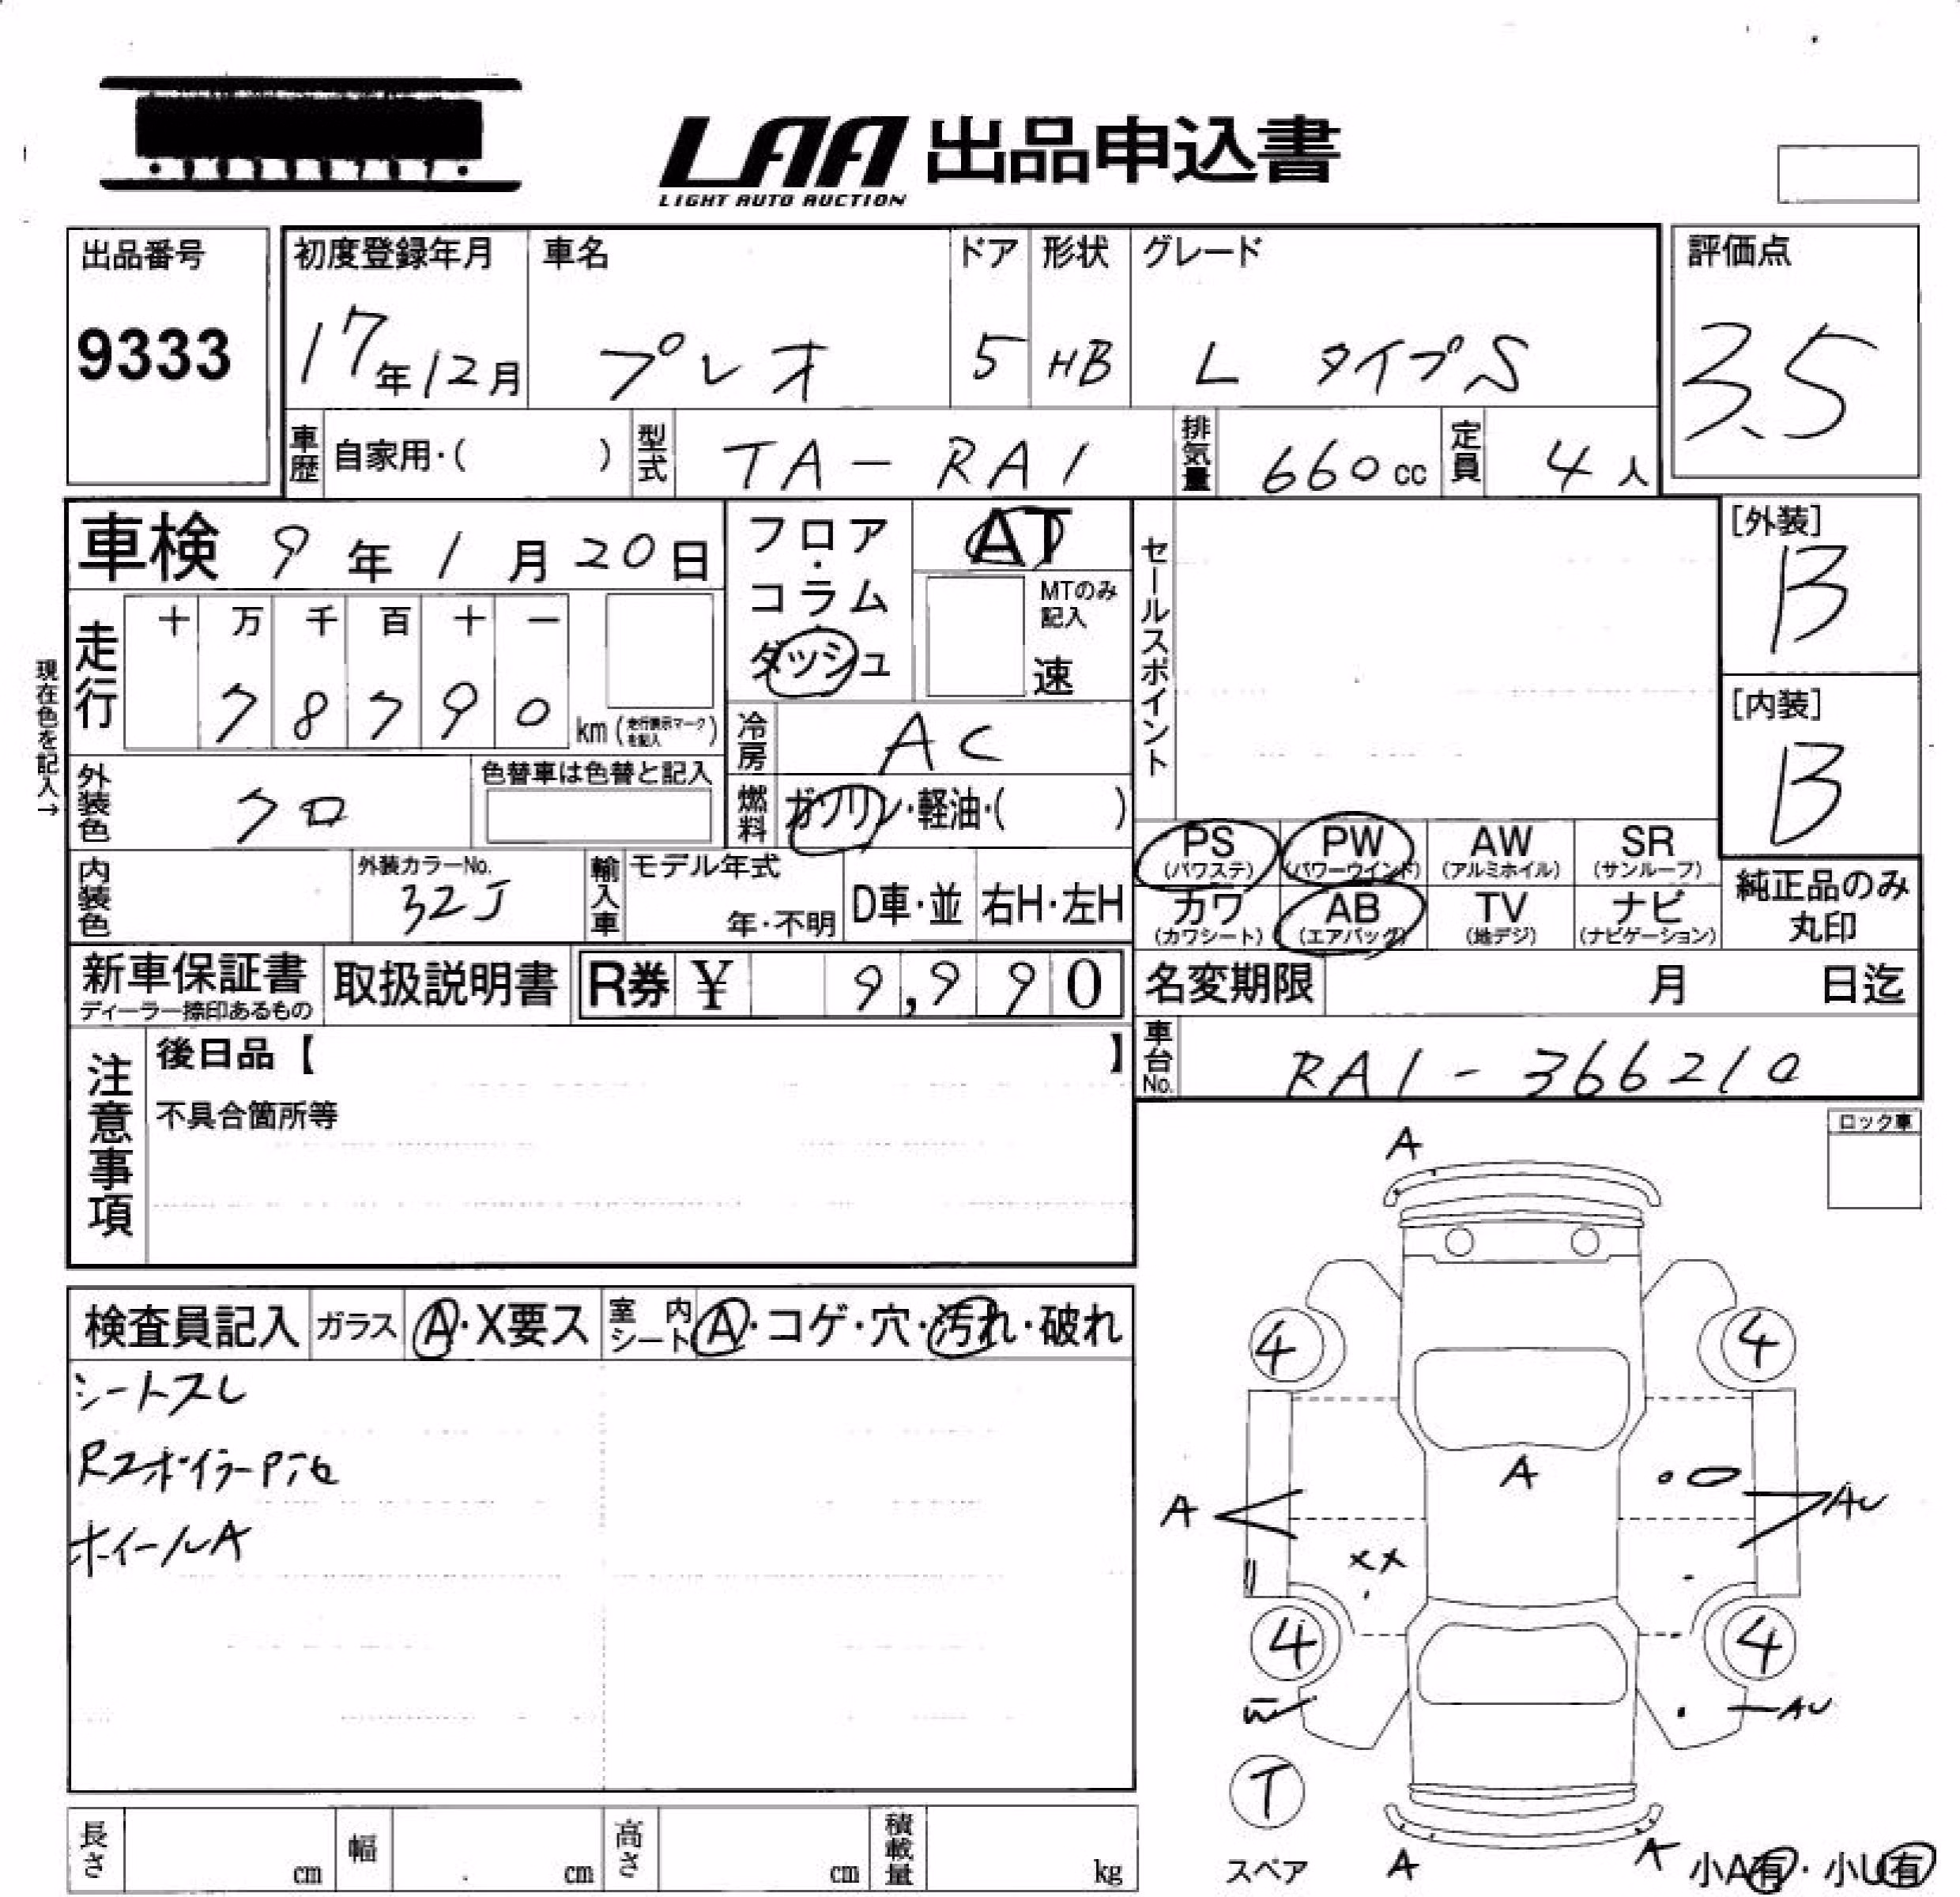 LAA 出品申込書
LIGHT AUTO AUCTION
出品番号
9333
初度登録年月 車名 ドア 形状 グレード
17年12月 プレオ 5 HB L タイプS
評価点
3.5
車歴 自家用・( ) 型式 TA-RA1 排気量 660cc 定員 4人
車検 9年1月20日
フロア・コラム・ダッシュ
AT
MTのみ記入
速
セールスポイント
[外装]
B
[内装]
B
現在色を記入→
走行
十 万 千 百 十 一
7 8 7 9 0 km (走行表示マークを記入)
冷房 AC
外装色 クロ
色替車は色替と記入
燃料 ガソリン・軽油・( )
PS (パワステ) PW (パワーウインド) AW (アルミホイル) SR (サンルーフ)
カワ (カワシート) AB (エアバッグ) TV (地デジ) ナビ (ナビゲーション)
純正品のみ
丸印
内装色
外装カラーNo.
32J
輸入車 モデル年式
年・不明
D車・並 右H・左H
新車保証書
ディーラー捺印あるもの
取扱説明書
R券 ¥ 9,990
名変期限 月 日迄
車台No. RA1-366210
注意事項
後日品【 】
不具合箇所等
ロック車
検査員記入 ガラス A・X要ス 室内シート A・コゲ・穴・汚れ・破れ
シートスレ
ホイールA
A
4 4
A
A AU
XX
4 4
AU
T
スペア
A A
小A有・小U有
長さ cm 幅 cm 高さ cm 積載量 kg